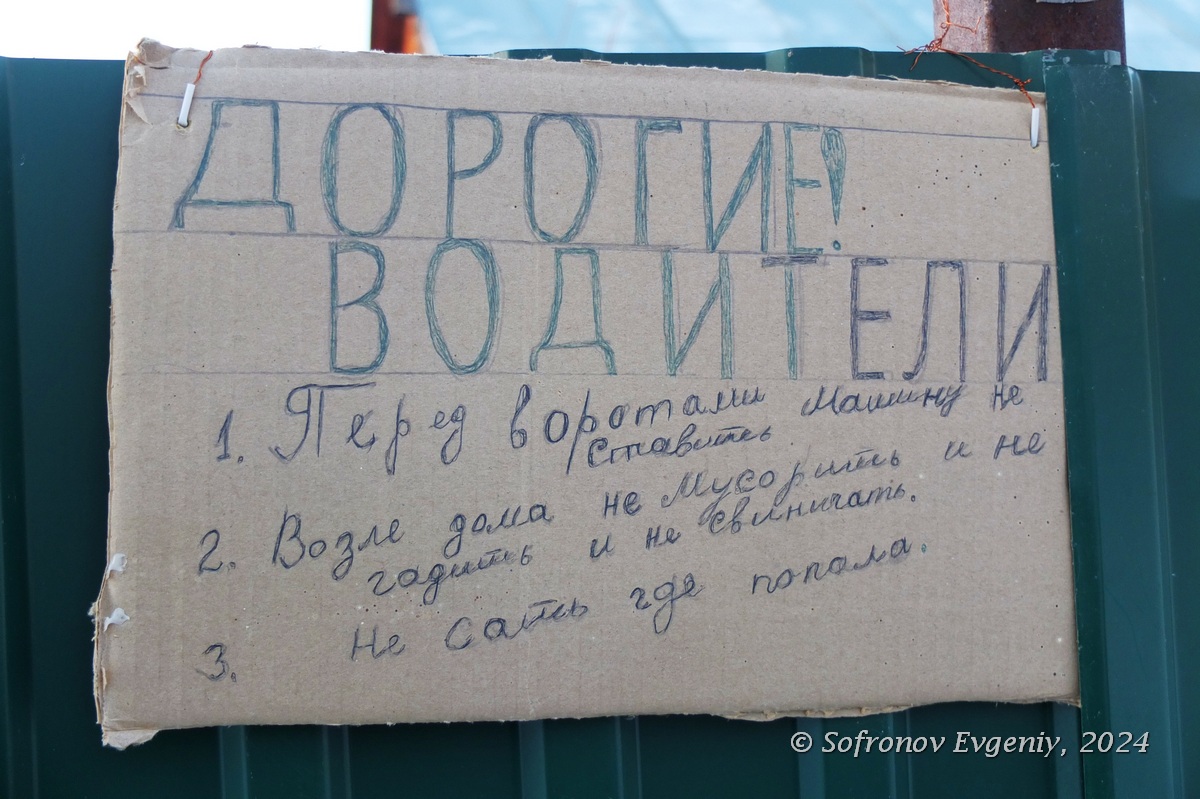 ДОРОГИЕ!
ВОДИТЕЛИ
1. Перед воротами машину не
ставить
2. Возле дома не мусорить и не
гадить и не свиничать.
3. Не сать где попала.
© Sofronov Evgeniy, 2024